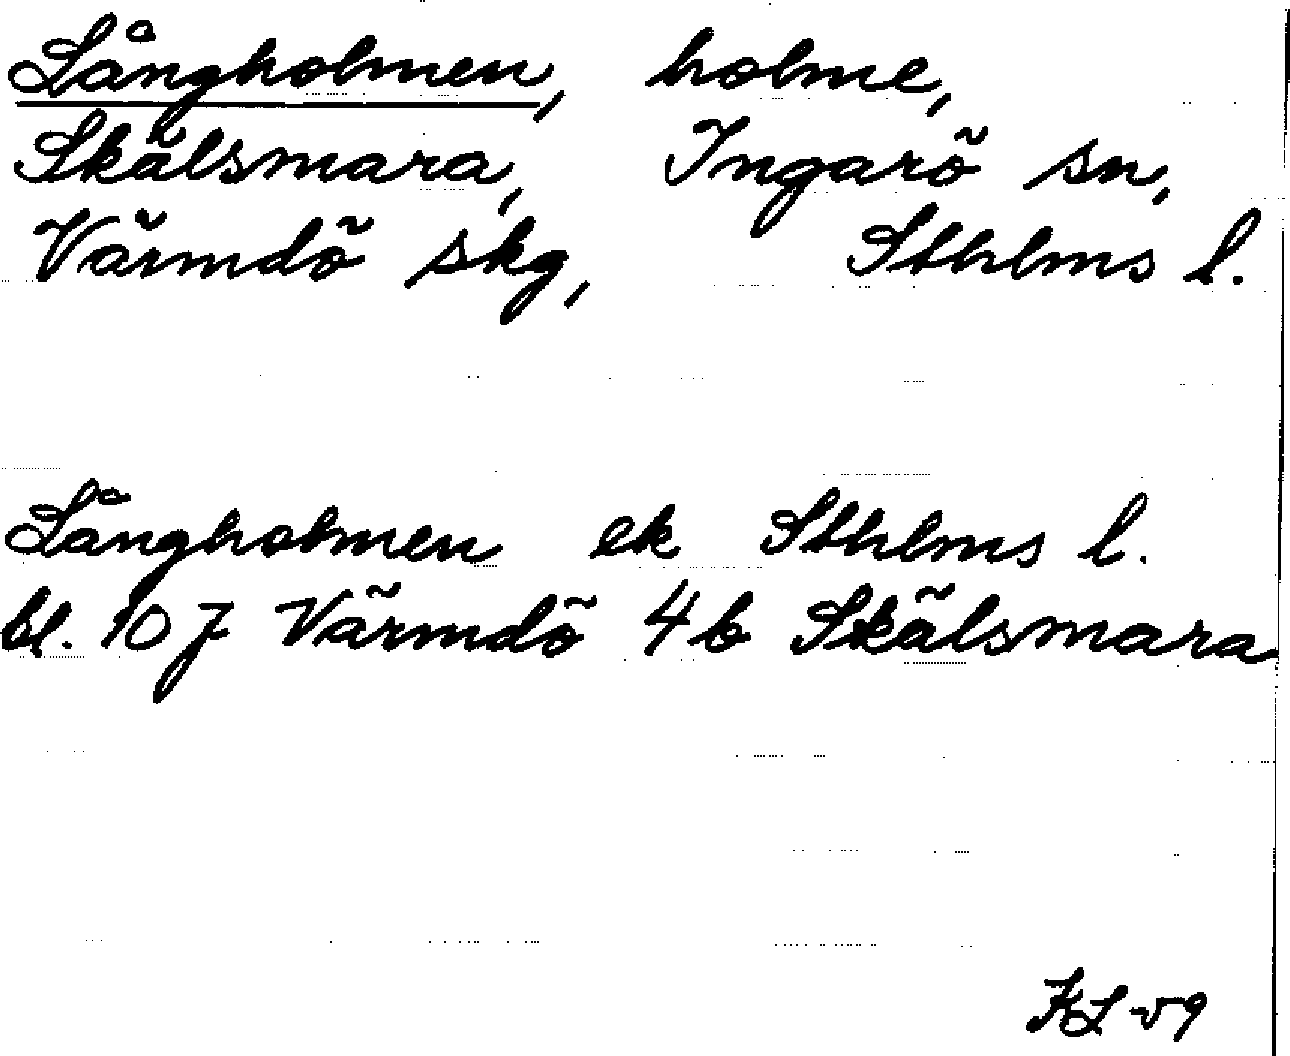 Långholmen, holme,
Skälsmara, Ingarö sn,
Värmdö skg, Sthlms l.
Långholmen ek Sthlms l.
bl. 107 Värmdö 4b Skälsmara
KL -59